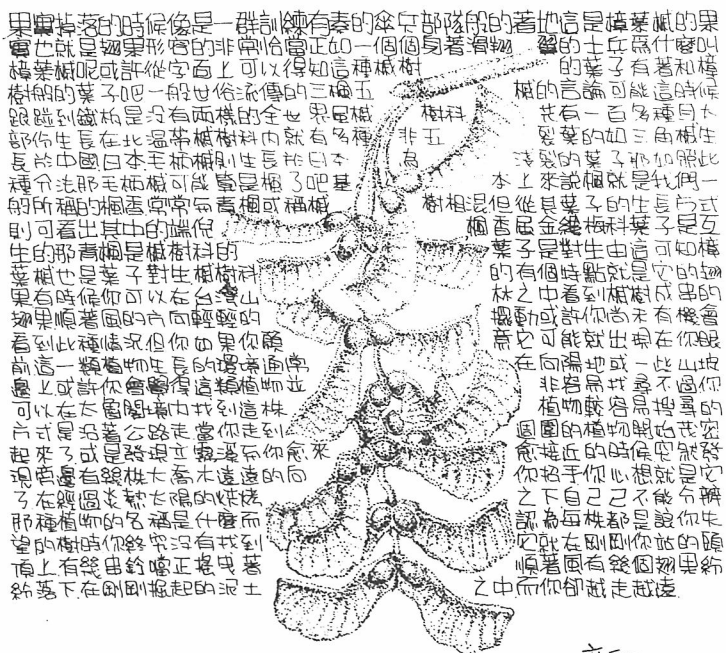 果實掉落的時候像是一群訓練有素的傘兵部隊般的著地這是樟葉槭的果
實也就是翅果形容的非常恰當正如一個個身著滑翔翼的士兵為什麼叫
樟葉槭呢或許從字面上可以得知這種槭樹的葉子有著和樟
樹般的葉子吧一般世俗流傳的三楓五槭的言論可能這時候
踢到鐵板是沒有兩樣的全世界屬槭樹科共有一百多種且大
部份生長在北溫帶槭樹科內就有多種非五裂葉的如三角槭生
長於中國日本毛柿槭則生長於日本為淺裂的葉子那如照此
種分法那毛柿槭可能算是楓了吧基本上來說楓就是我們一
般所稱的楓香常常與青楓或稱槭樹相混但從其葉子的生長方式
則可看出其中的端倪楓香屬金縷梅科葉子是互
生的那青楓是槭樹科的葉子是對生由這可知樟
葉槭也是葉子對生槭樹科的有個特點就是它的翅
果有時候你可以在台灣山林之中看到槭樹成串的
翅果順著風的方向輕輕的擺動或許你尚未有機會
看到此種情況但你如果你願意它可能就出現在你眼
前這一類植物生長的環境通常在向陽地或一些山坡
邊上或許你會覺得這類植物並非容易找尋不過你
可以在太魯閣境內找到這株植物較容易搜尋的
方式是沿著公路走當你走到週圍的植物開始茂密
起來了或是發現立霧溪而你愈來愈接近的時候突然發
現旁邊有幾株大喬木遠遠的向你招手你心想就是它
了在經過炎熱太陽的烘烤之下自己已不能分辨
那種植物的名稱是什麼而認為每株都是說你失
望的樹時你終究沒有找到它就在剛剛你站的頭
頂上有幾串鈴噹正搖曳著順著風有幾個翅果紛
紛落下在剛剛掘起的泥土之中而你卻越走越遠